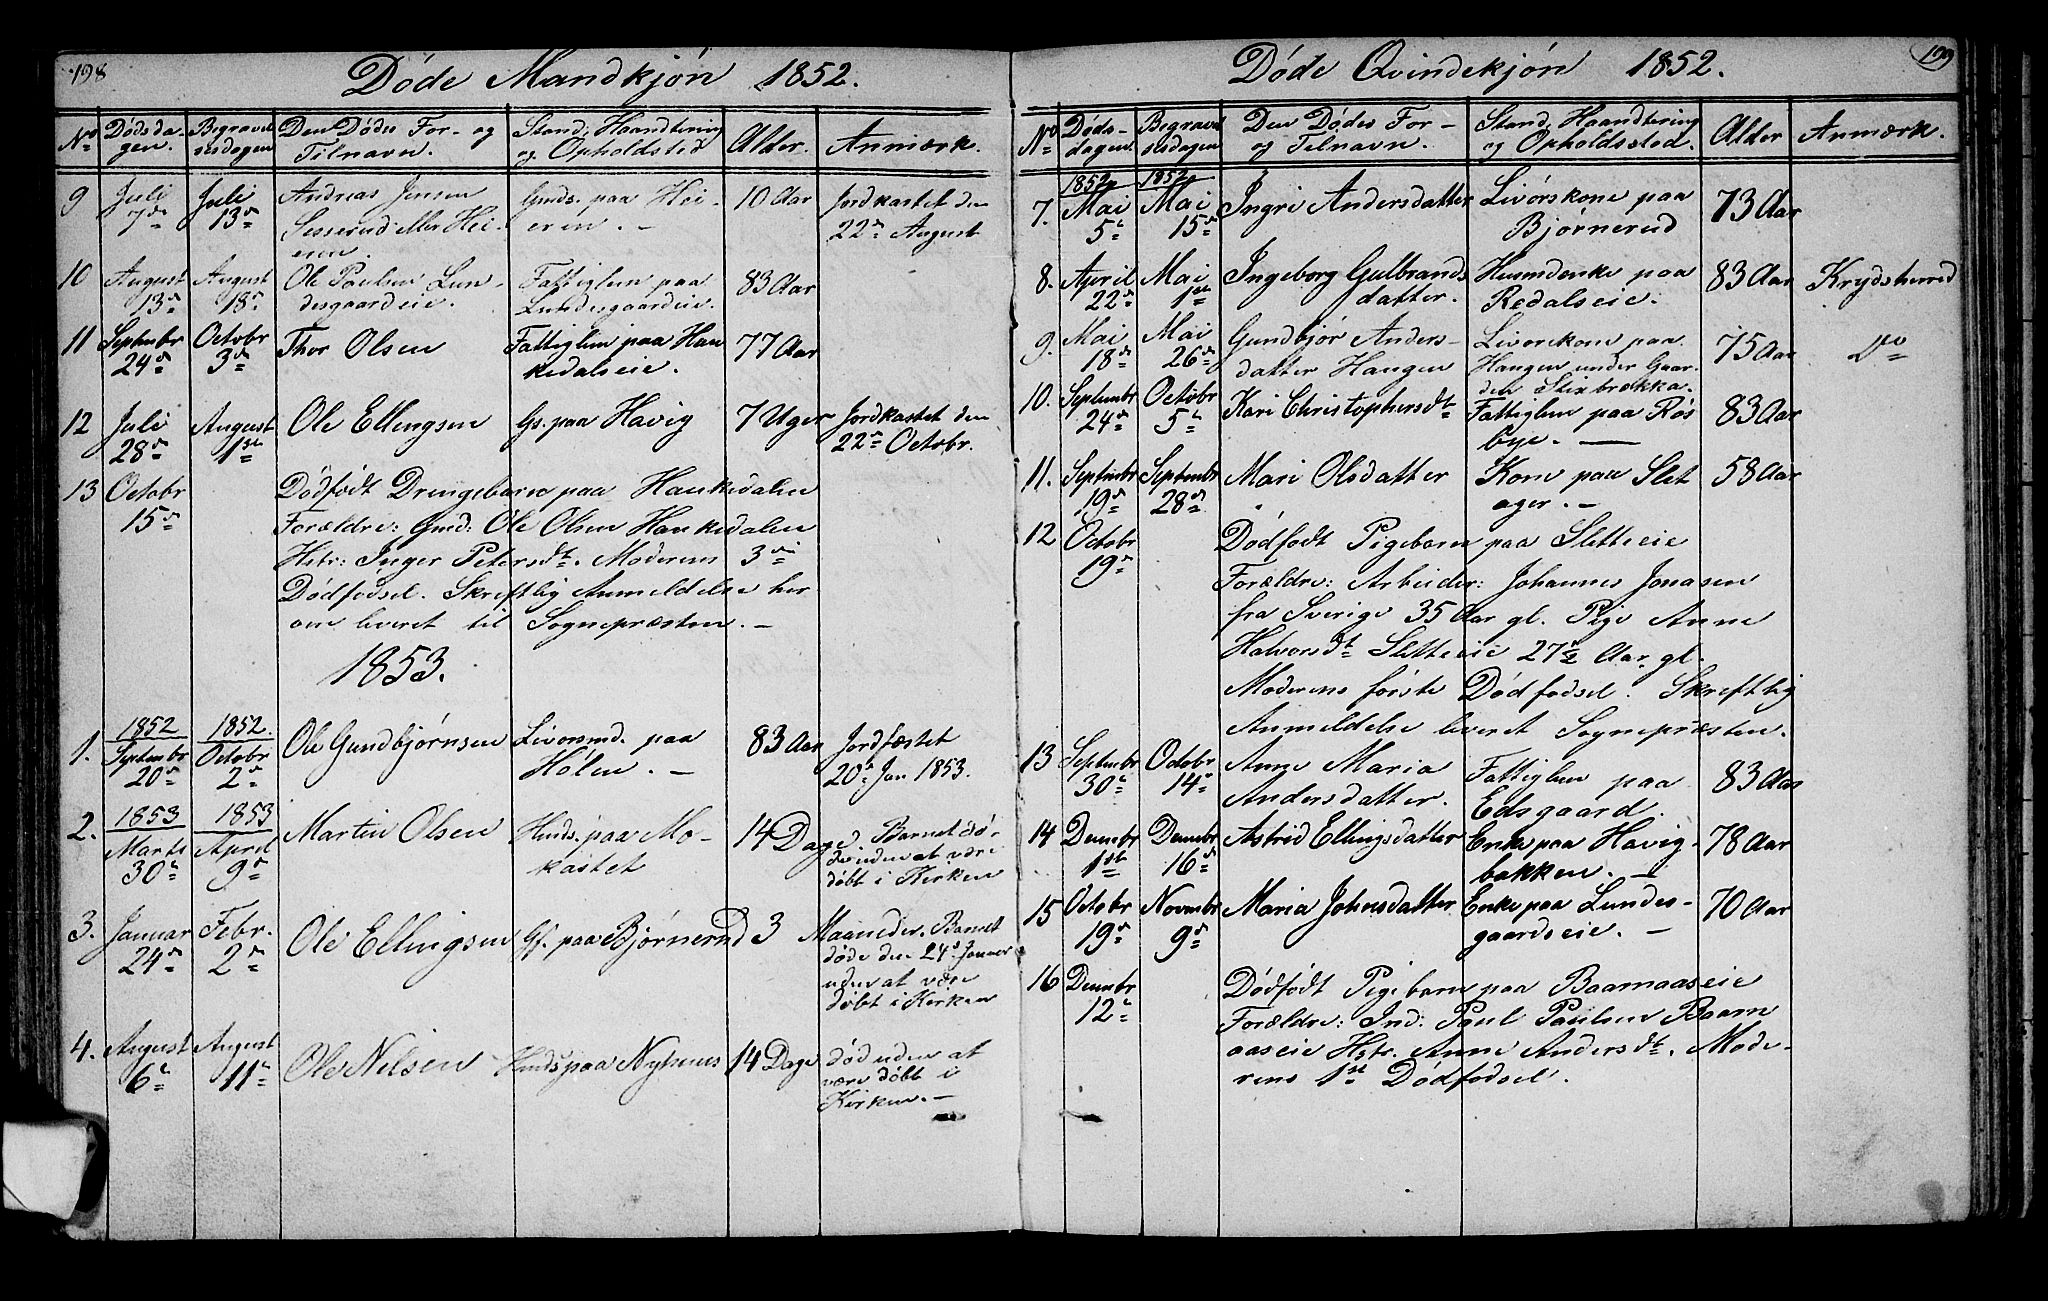 198
Døde Mandkjøn 1852.
No Dødsda- Begravel- Den Dødes For- og Stand, Haandtering Alder. Anmærk.
gen. sesdagen Tilnavn. og Opholdsted
9 Juli Juli Andreas Jensen Gmds. paa Hei- 10 Aar Jordkastet den
7de 13de Sesserud eller Hei- eren. – 22de August
eren.
10 August August Ole Paulsen Lun- Fattiglem paa 83 Aar
13de 18de desgaardeie. Lundesgaardeie.
11 Septembr Octobr Thor Olsen Fattiglem paa Hau 77 Aar
24de 3de kedalseie.
12 Juli August Ole Ellingsen Gs. paa Havig 7 Uger Jordkastet den
28de 1ste 22de Octobr.
13 Octobr Dødfødt Drengebarn paa Haukedalen
15de Forældre: Gmd: Ole Olsen Haukedalen
Hstr: Inger Petersdt. Moderens 3die
Dødfødsel. Skreftlig Anmeldelse her
om leveret til Sognepræsten. –
1853.
1. 1852 1852. Ole Gundbjørnsen Livørsmd. paa 83 Aar Jordfæstet
Septembr Octobr Hølen. – 20de Jan 1853.
20de 2de
2. 1853 1853 Martin Olsen Hmds. paa Mo- 14 Dage. Barnet dø-
Marts April kastet de uden at være
30te 9de døbt i Kirken
3. Januar Febr. Ole Ellingsen Gf. paa Bjørnerud 3 Maaneder. Barnet
24de 2de døde den 24de Januar
uden at være
døbt i Kirken
4. August August Ole Nilsen Hmds paa Nyhuus 14 Dage død uden at
6te 11te være døbt i
Kirken. –
199
Døde Qvindekjøn 1852.
No Døds- Begravel Den Dødes For- Stand, Haandtering Alder Anmærk.
dagen. sesdagen og Tilnavn. og Opholdssted.
1852 1852
7. Mai Mai Ingri Andersdatter Livørskone paa 73 Aar
5te 15de Bjørnerud
8. April Mai Ingeborg Gulbrands Huusmdenke paa 83 Aar Krydsherred
22de 1ste datter. Redalseie.
9. Mai Mai Gundbjør Anders- Livørskone paa 75 Aar Do
18de 26de datter Haugen Haugen under Gaar
den Stixbrækka.
10. Septembr Octobr Kari Christophersdt Fattiglem paa Røs 83 Aar
24de 5te bye. –
11. Septembr Septembr Mari Olsdatter Kone paa Slet 58 Aar
19de 28de ager. –
12 Octobr Dødfødt Pigebarn paa Sletteeie
19de Forældre: Arbeider: Johannes Jonasen
fra Sverige 35 Aar gl. Pige Anne
Halvorsdt Sletteeie 27½ Aar gl.
Moderens første Dødfødsel. Skreftlig
Anmeldelse leveret Sognepræsten.
13 Septembr Octobr Anne Maria Fattiglem paa 83 Aar
30te 14de Andersdatter. Edsgaard.
14 Decembr Decembr Astrid Ellingsdatter Enke paa Havig- 78 Aar
1ste 16de bakken. –
15 Octobr Novembr Maria Johnsdatter Enke paa Lundes- 70 Aar
19de 9de gaardseie. –
16 Decembr Dødfødt Pigebarn paa Baarnaaseie
12te Forældre: Ind: Paul Paulsen Baarn
aaseie Hstr. Anne Andersdt. Mode-
rens 1ste Dødfødsel.